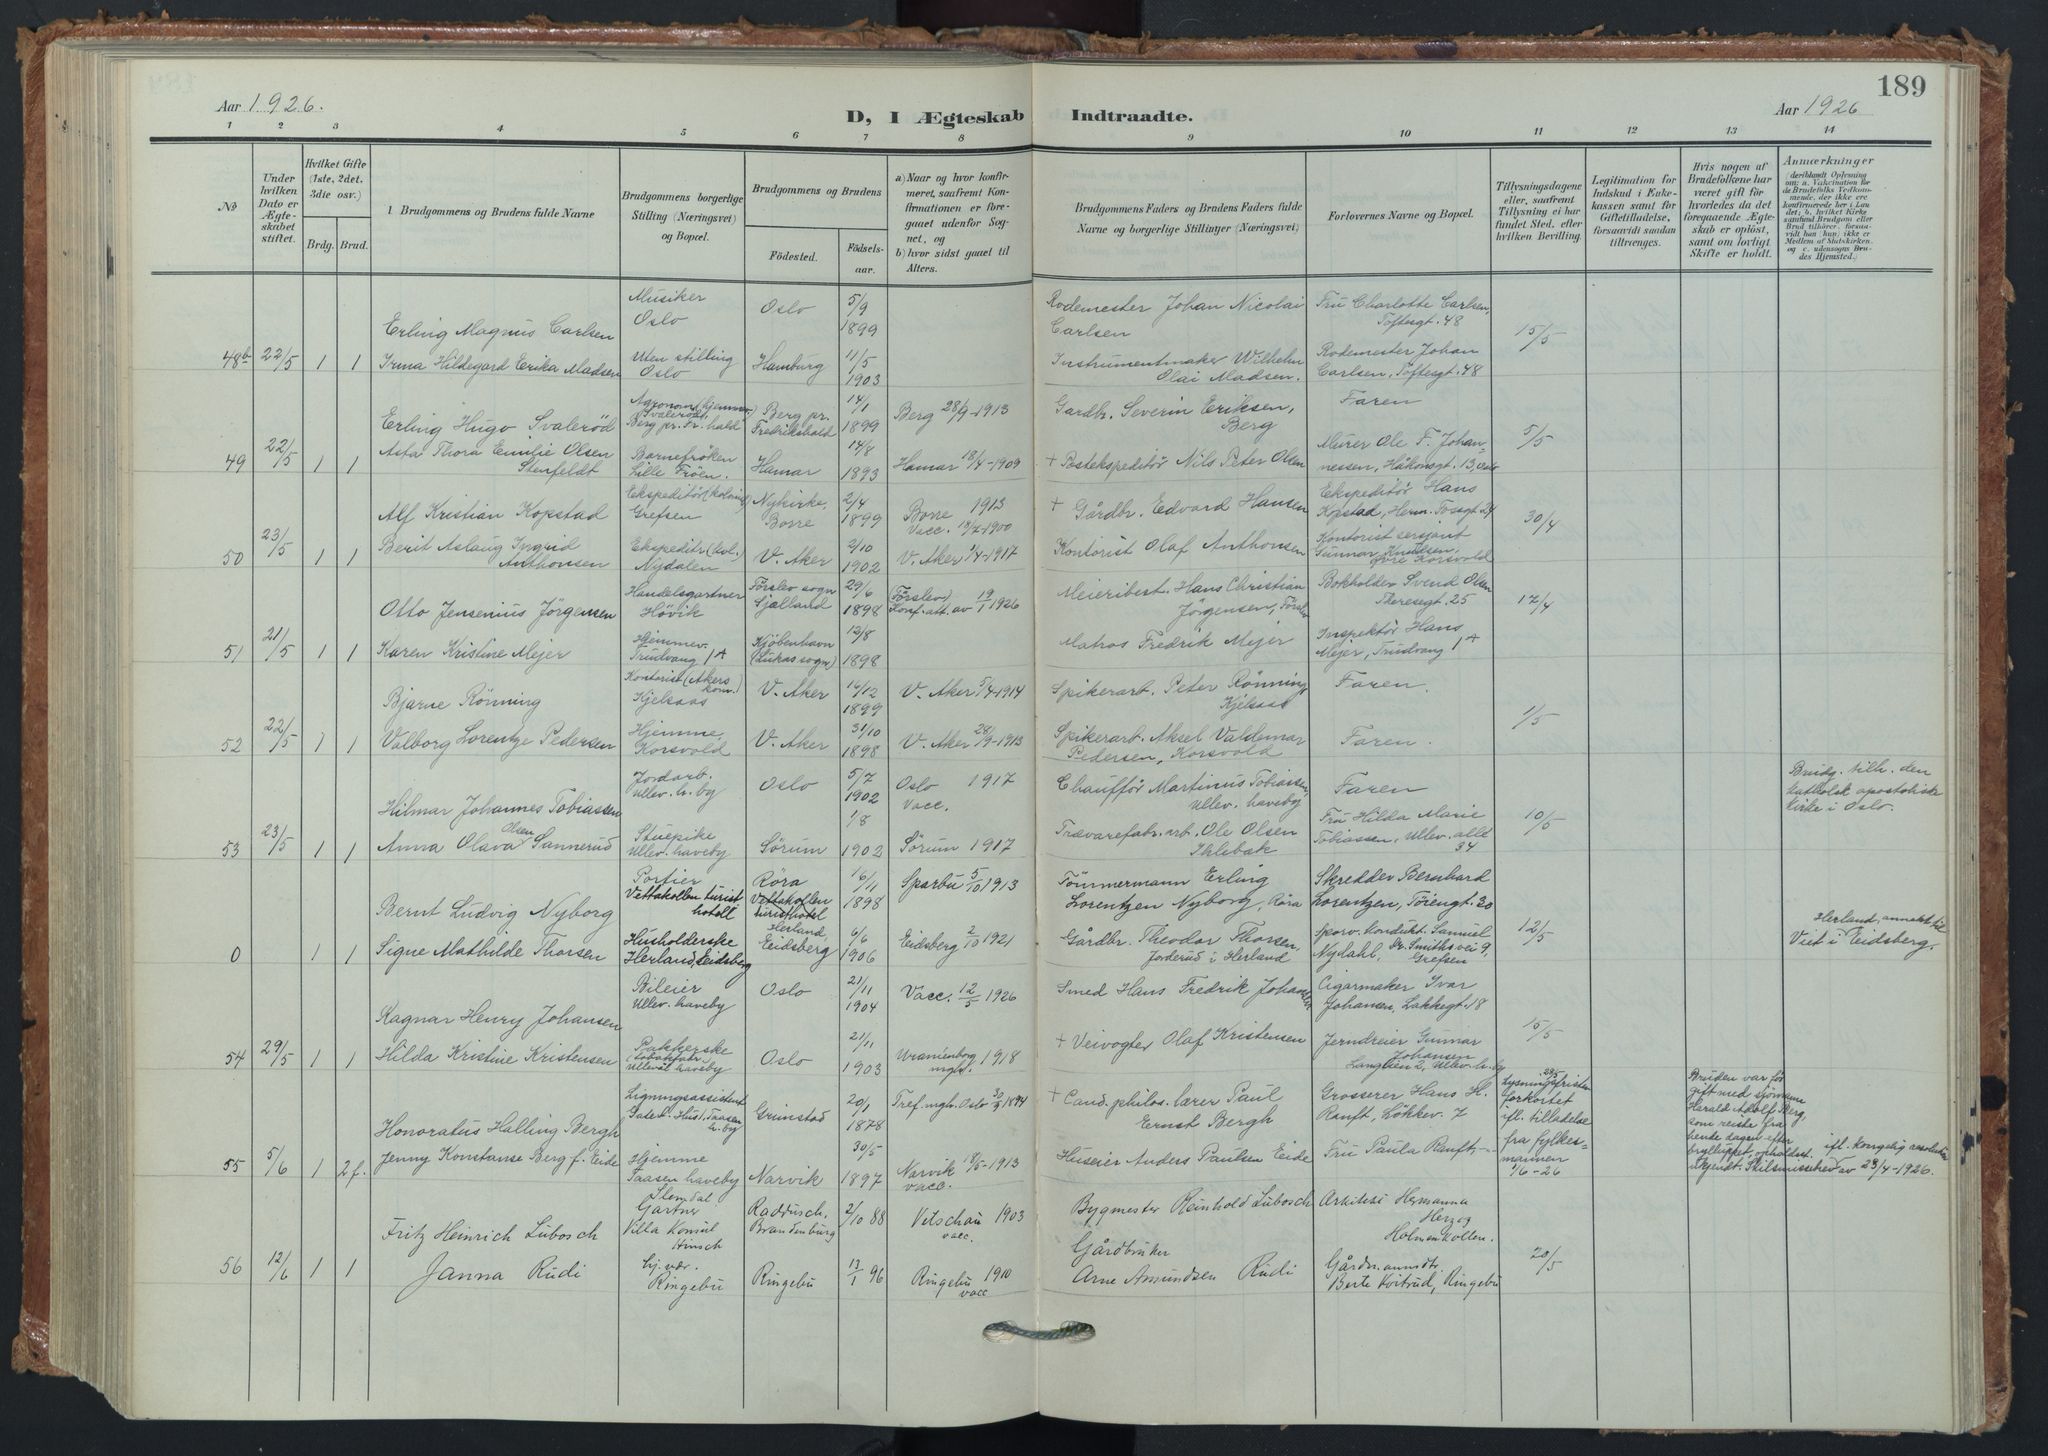 189
Aar 1926.
D, I Ægteskab Indtraadte.
Aar 1926
1 2 3 4 5 6 7 8 9 10 11 12 13 14
No
Under hvilken Dato er Ægteskabet stiftet.
Hvilket Gifte (1ste, 2det, 3die osv.)
Brdg. Brud.
1 Brudgommens og Brudens fulde Navne
Brudgommens borgerlige Stilling (Næringsvei) og Bopæl.
Brudgommens og Brudens
Fødested.
Fødselsaar.
a) Naar og hvor konfirmeret, saafremt Konfirmationen er foregaaet udenfor Sognet, og
b) hvor sidst gaaet til Alters.
Brudgommens Faders og Brudens Faders fulde Navne og borgerlige Stillinger (Næringsvei)
Forlovernes Navne og Bopæl.
Tillysningsdagene eller, saafremt Tillysning ei har fundet Sled, efter hvilken Bevilling.
Legitimation for Indskud i Enkekassen samt for Giftetilladelse, forsaavidt saadan tiltrænges.
Hvis nogen af Brudefolkene har været gift før hvorledes da det foregaaende Ægteskab er opløst, samt om lovligt Skifte er holdt.
Anmærkninger (deriblandt Oplysning om: a. Vakcination for de Brudefolks Vedkommende, der ikke ere konfirmerede her i Landet; b. hvilket Kirkesamfund Brudgom eller Brud tilhører, forsaavidt han (hun) ikke er Medlem af Statskirken, og c. udensogns Brudes Hjemsted.)
Erling Magnus Carlsen Musiker Oslo Oslo 5/9 1899 Rodemester Johan Nicolai Carlsen Fru Charlotte Carlsen, Toftesgt. 48
48b 22/5 1 1 Irma Hildegard Erika Madsen Uten stilling Oslo Hamburg 11/5 1903 Instrumentmaker Wilhelm Olai Madsen. Rodemester Johan Carlsen, Toftesgt. 48 15/5
Erling Hugo Svaleröd Agronom (hjemmev.) Svaleröd, Berg pr. Fr.hald Berg pr. Fredrikshald 14/1 1899 Berg 28/9-1913 Gardbr. Severin Eriksen, Berg Faren
49 22/5 1 1 Asta Thora Emilie Olsen Stenfeldt Barnefröken Lille Fröen. Hamar 14/8 1893 Hamar 18/4-1909 + Postekspeditör Nils Peter Olsen Murer Ole F. Johannessen, Håkonsgt. 13, Oslo 5/5
Alf Kristian Kopstad Ekspeditör (kolonial) Grefsen Nykirke, Borre 2/4 1899 Borre 1913 Vacc. 18/7-1900 + Gårdbr. Edvard Hansen Ekspeditör Hans Kopstad, Herm. Fossgt 24
50 23/5 1 1 Berit Aslaug Ingrid Anthonsen Ekspeditr. (kol.) Nydalen V. Aker 2/10 1902 V. Aker 1/4-1917 Kontorist Olaf Anthonsen Kontorist sersjant Gunnar Knudsen, övre Korsvold 30/4
Otto Jensenius Jörgensen Handelsgartner Hövik Förslev sogn Sjælland 29/6 1898 (Förslev) Konf.att. av 19/1 1926 Meieribest. Hans Christian Jörgensen, Förslev Bokholder Svend Olsen Theresegt. 25
51 21/5 1 1 Karen Kristine Mejer Hjemmev. Trudvang 1A Kjöbenhavn (Lukas sogn) 12/8 1898 Matros Fredrik Mejer Inspektör Hans Mejer, Trudvang 1A 17/4
Bjarne Rönning Kontorist (Akers kom.) Kjelsaas V. Aker 16/12 1899 V. Aker 5/4-1914 Spikerarb. Peter Rönning, Kjelsaas Faren.
52 22/5 1 1 Valborg Lorentze Pedersen Hjemme, Korsvold V. Aker 31/10 1898 V. Aker 28/9-1913 Spikerarb. Aksel Valdemar Pedersen, Korsvold Faren. 1/5
Hilmar Johannes Tobiassen Jordarb. Ullev. h. by Oslo 5/7 1902 Oslo 1917 Vacc. Chaufför Martinus Tobiassen, Ullev. haveby Faren Brudg. tilh. den katholsk apostoliske kirke i Oslo.
53 23/5 1 1 Anna Olava Olsen Sannerud Stuepike Ullev. haveby Sörum 1/8 1902 Sörum 1917 Trævarefabr. arb. Ole Olsen Ihlebæk Fru Hilda Marie Tobiassen, Ullev. allé 34 10/5
Bernt Ludvig Nyborg Portier Vettakollen turisthotell Röra Vettakollen turisthotel 16/11 1898 Sparbu 5/10 1913 Tömmermann Erling Lorentzen Nyborg, Röra Skredder Bernhard Lorentzen, Töiengt. 30
0 1 1 Signe Mathilde Thorsen Husholderske Herland, Eidsberg Herland, Eidsberg 6/6 1906 Eidsberg 2/10 1921 Gårdbr. Theodor Thorsen, Jorderud i Herland Sporv. kondukt. Samuel Nydahl, Dr. Smiths vei 9, Grefsen 12/5 Viet i Herland, annekt til Eidsberg.
Ragnar Henry Johansen Bileier Ullev. haveby Oslo 21/11 1904 Vacc. 12/5 1926 Smed Hans Fredrik Johansen Cigarmaker Ivar Johansen, Lakkegt. 18
54 29/5 1 1 Hilda Kristine Kristensen Pakkerske (tobakfabr.) Ullevål haveby Oslo 21/11 1903 Uranienborg mgh. 1918 + Veivogter Olaf Kristensen Jerndreier Gunnar Johansen Langlien 2, Ullev. h. by 15/5
Honoratus Halling Bergh Ligningsassistent Grimstad 20/1 1878 Tref. mgh. Oslo 30/9 1894 + Cand. philos. lærer Paul Ernst Bergh Grosserer Hans H. Ranft, Lökkev. 7
55 5/6 1 2 f. Jenny Konstanse Berg f. Eide Hjemme Taasen haveby Narvik 30/5 1897 Narvik 18/5-1913 vacc. Huseier Anders Paulsen Eide Fru Paula Ranft,
29/5 Lysningsfristen forkortet ifl. tilladelse fra fylkesmannen 1/6-26
Bruden var för gift med sjömann Harald Adolf Berg, som reiste fra hende dagen efter brylluppet, opholdsst. ukjendt. Skilsmissebev. ifl. kongelig resolution av 23/4-1926.
Fritz Heinrich Lubosch Slemdal Gartner Villa Konsul Hinsch Raddusch, Brandenburg 2/10 88 Vetschau 1903 vacc. Bygmester Reinhold Lubosch Arkitekt Hermanna Herzog Holmenkollen.
56 12/6 1 1 Janna Rudi Hj. vær. Ringebu Ringebu 13/1 96 Ringebu 1910 vacc Gårdbruker Arne Amundsen Rudi Berte Kvitrud, Ringebu 20/5